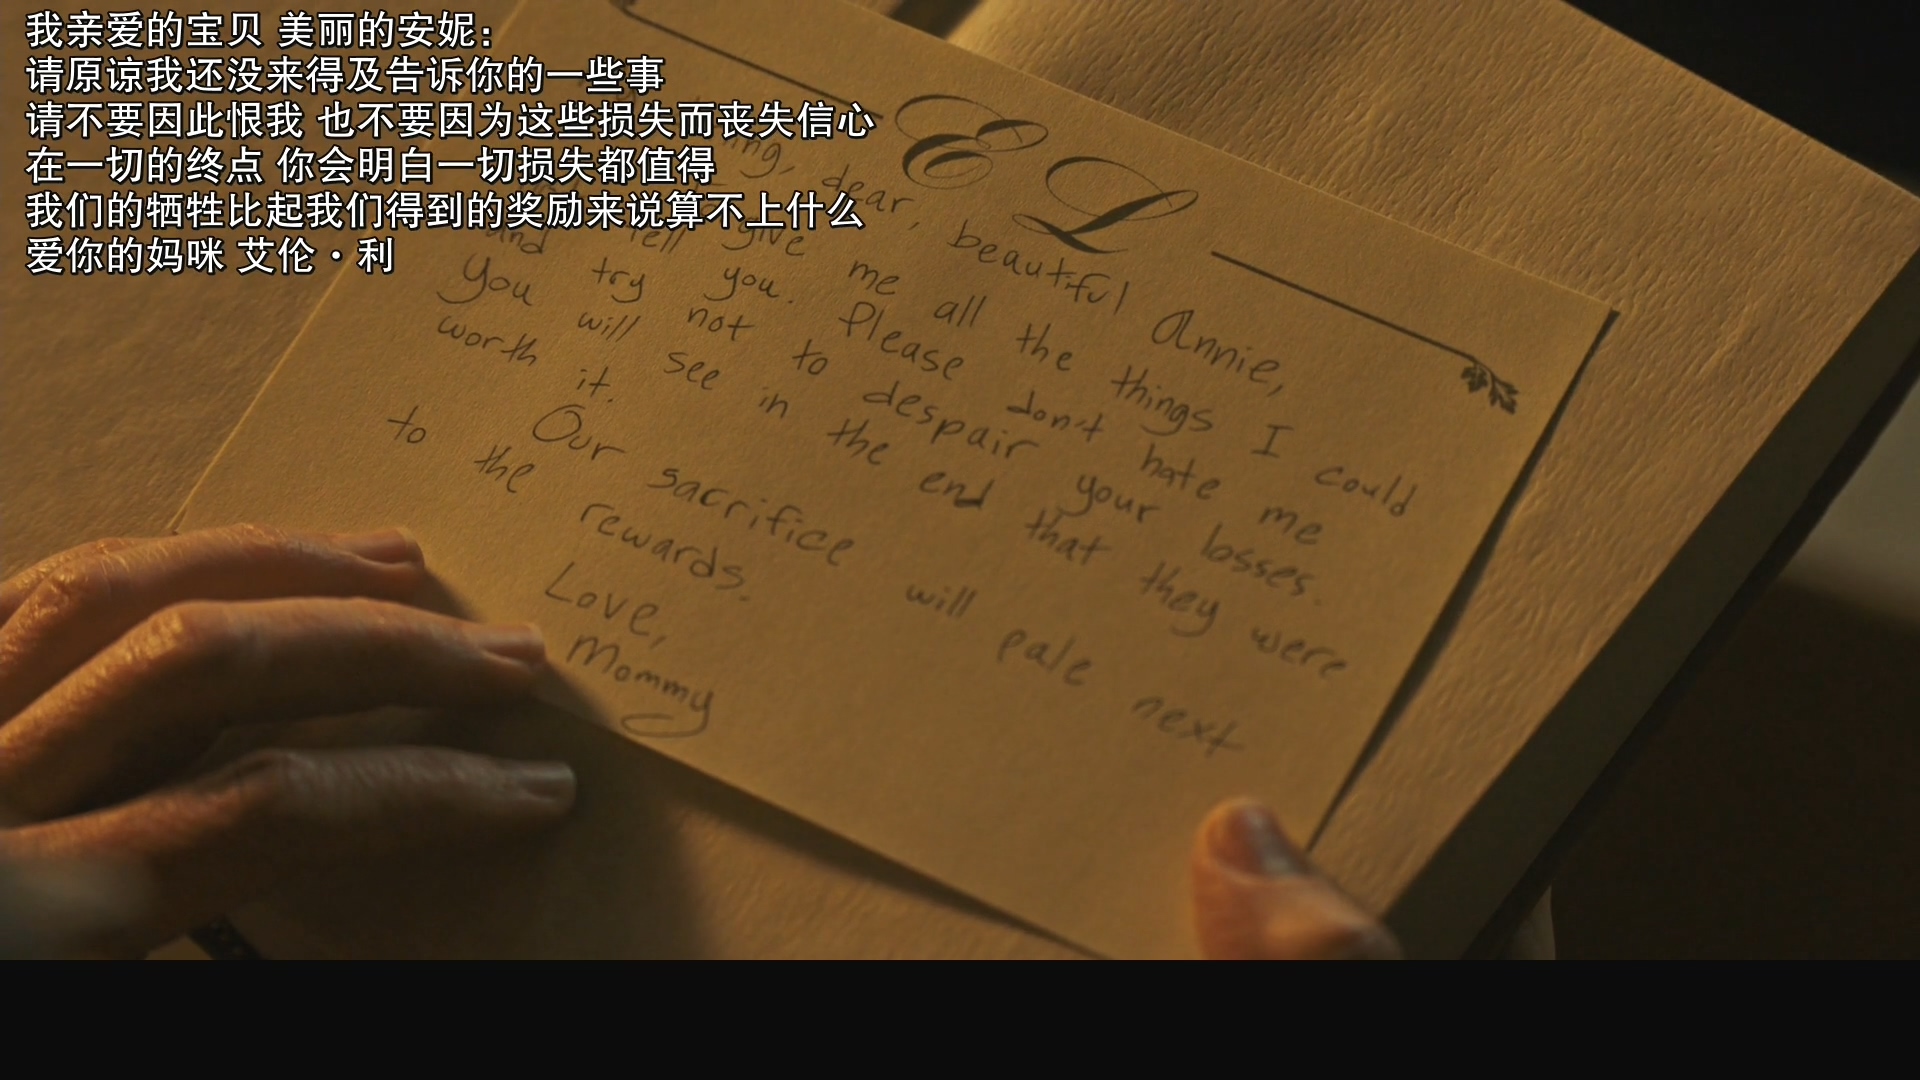 我亲爱的宝贝 美丽的安妮：
请原谅我还没来得及告诉你的一些事
请不要因此恨我 也不要因为这些损失而丧失信心
在一切的终点 你会明白一切损失都值得
我们的牺牲比起我们得到的奖励来说算不上什么
爱你的妈咪 艾伦·利
EL
dear, beautiful Annie,
give me all the things I could
tell you. Please don't hate me
and try not to despair your losses.
You will see in the end that they were
worth it. Our sacrifice will pale next
to the rewards.
Love,
Mommy